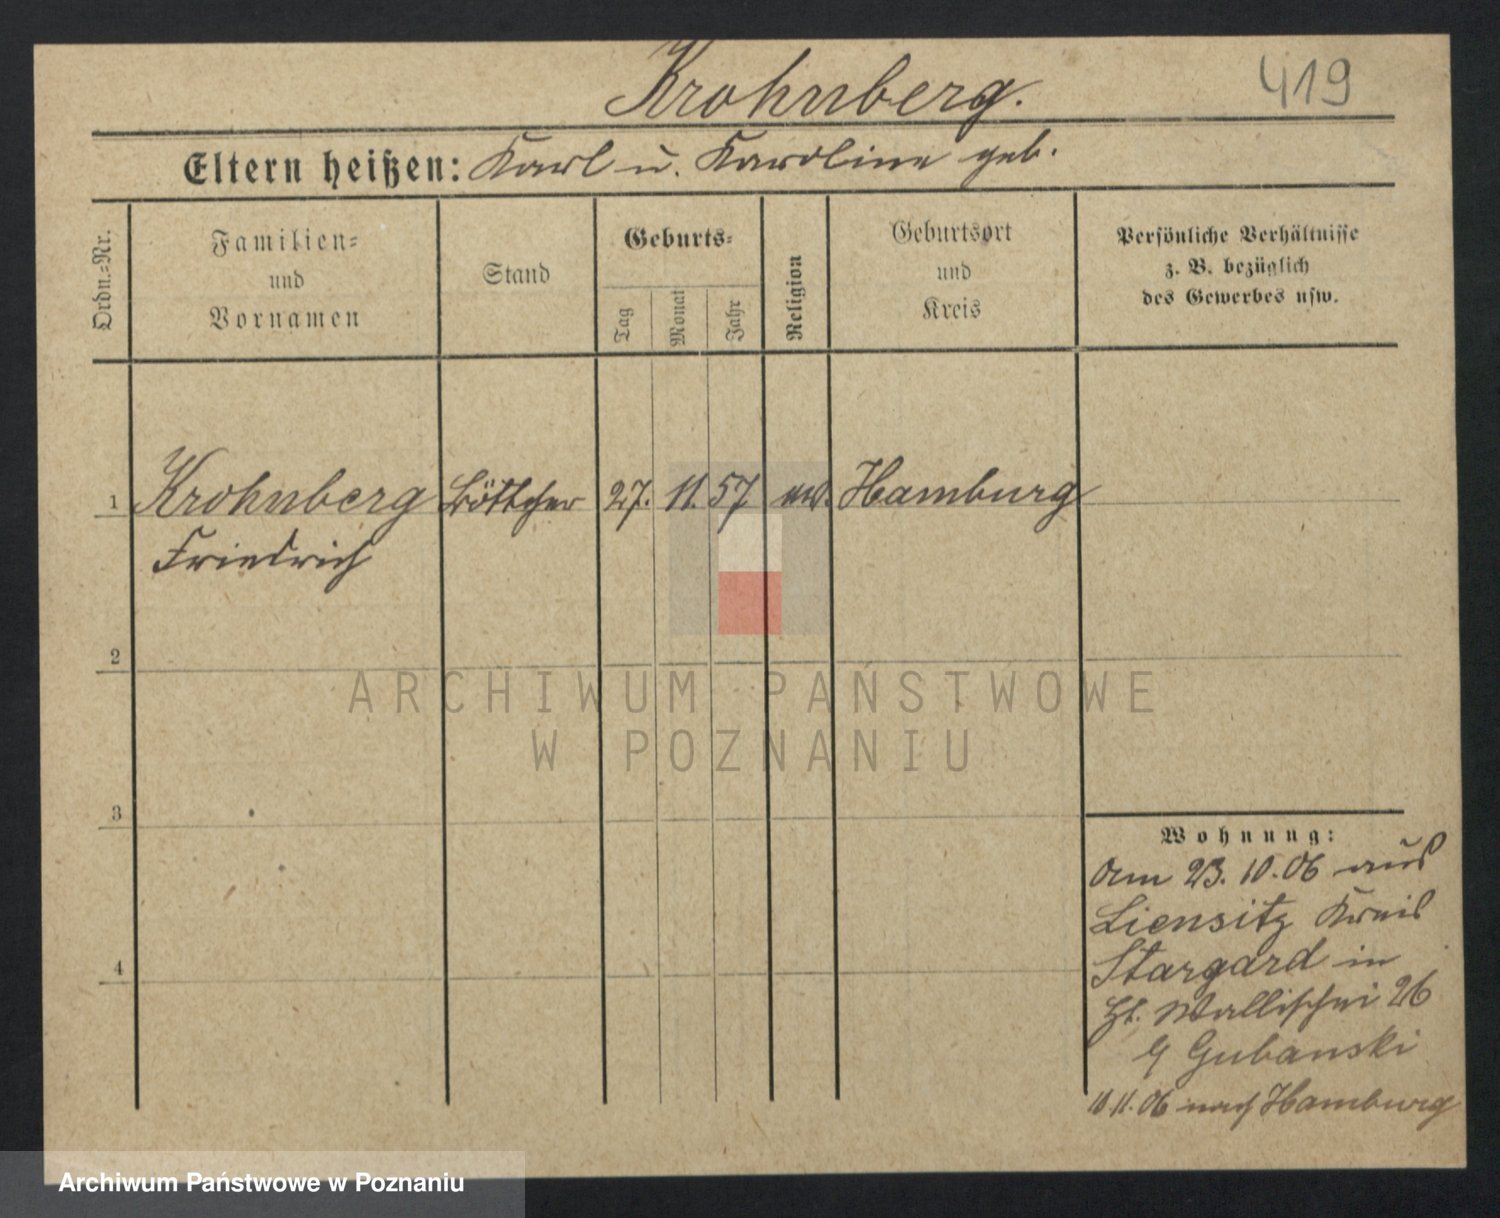 Krohnberg.
419
Eltern heißen: Karl u. Karoline geb.
Ordn.=Nr.
Familien=
und
Vornamen
Stand
Geburts=
Tag
Monat
Jahr
Religion
Geburtsort
und
Kreis
Persönliche Verhältnisse
z. B. bezüglich
des Gewerbes usw.
1 Krohnberg Böttcher 27. 11. 57 ev. Hamburg
Friedrich
2
3
4
Wohnung:
Am 23. 10. 06 aus
Liensitz Kreis
Stargard in
Wallischei 26
Gubanski
11. 06 nach Hamburg
ARCHIWUM PAŃSTWOWE
W POZNANIU
Archiwum Państwowe w Poznaniu